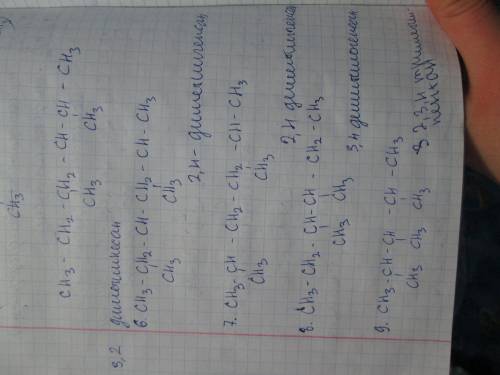 CH₃
CH₃ - CH₂ - CH₂ - CH - CH - CH₃
CH₃ CH₃
3,2 диметилгексан
6. CH₃ - CH₂ - CH - CH₂ - CH - CH₃
CH₃ CH₃
2,4 - диметилгексан
7. CH₃ - CH - CH₂ - CH₂ - CH - CH₃
CH₃ CH₃
2,4 диметилгексан
8. CH₃ - CH₂ - CH - CH - CH₂ - CH₃
CH₃ CH₃
3,4 диметилгексан
9. CH₃ - CH - CH - CH - CH₃
CH₃ CH₃ CH₃
2,3,4 триметил-
пентан